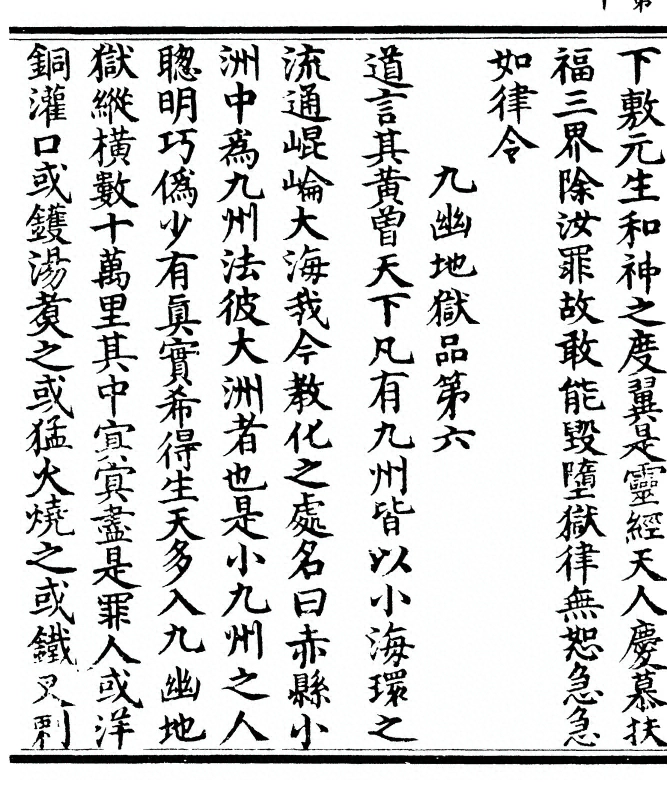 下敷元生和神之度翼是靈經天人慶慕扶
福三界除汝罪故敢能毀墮獄律無恕急急
如律令
九幽地獄品第六
道言其黃曾天下凡有九州皆以小海環之
流通崐崘大海我今教化之處名曰赤縣小
洲中爲九州法彼大洲者也是小九州之人
聦明巧僞少有眞實希得生天多入九幽地
獄縱橫數十萬里其中寅寅盡是罪人或洋
銅灌口或鑊湯煑之或猛火燒之或鐵叉刺